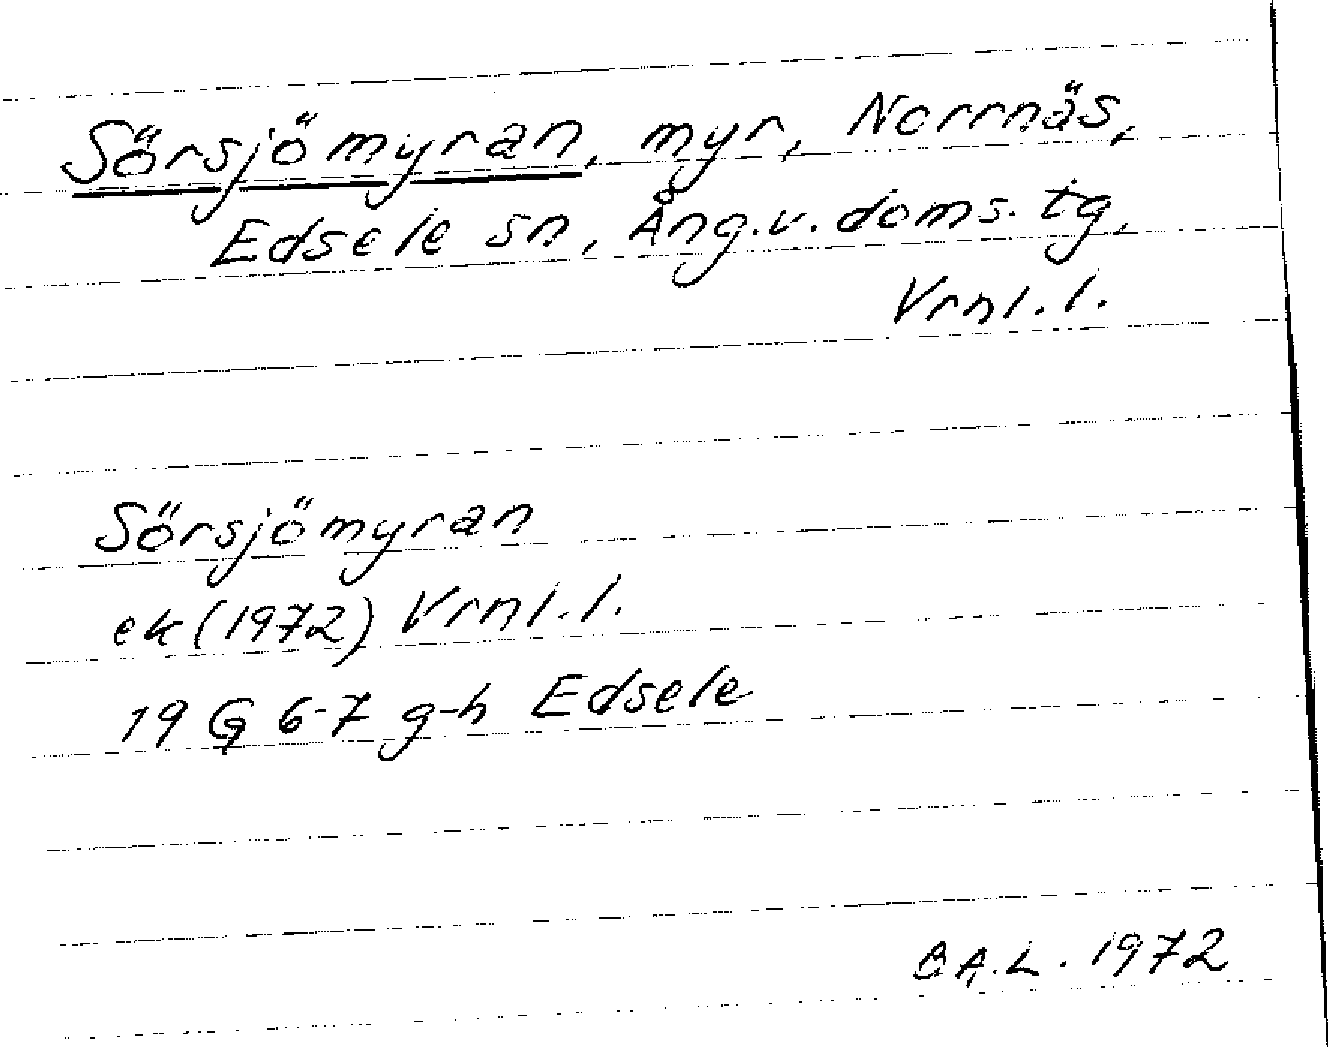 Sörsjömyran, myr, Norrnäs,
Edsele sn, Ång.v.doms.tg,
Vrnl.l.
Sörsjömyran
ek (1972) Vrnl.l.
19 G 6-7 g-h Edsele
B A.L. 1972